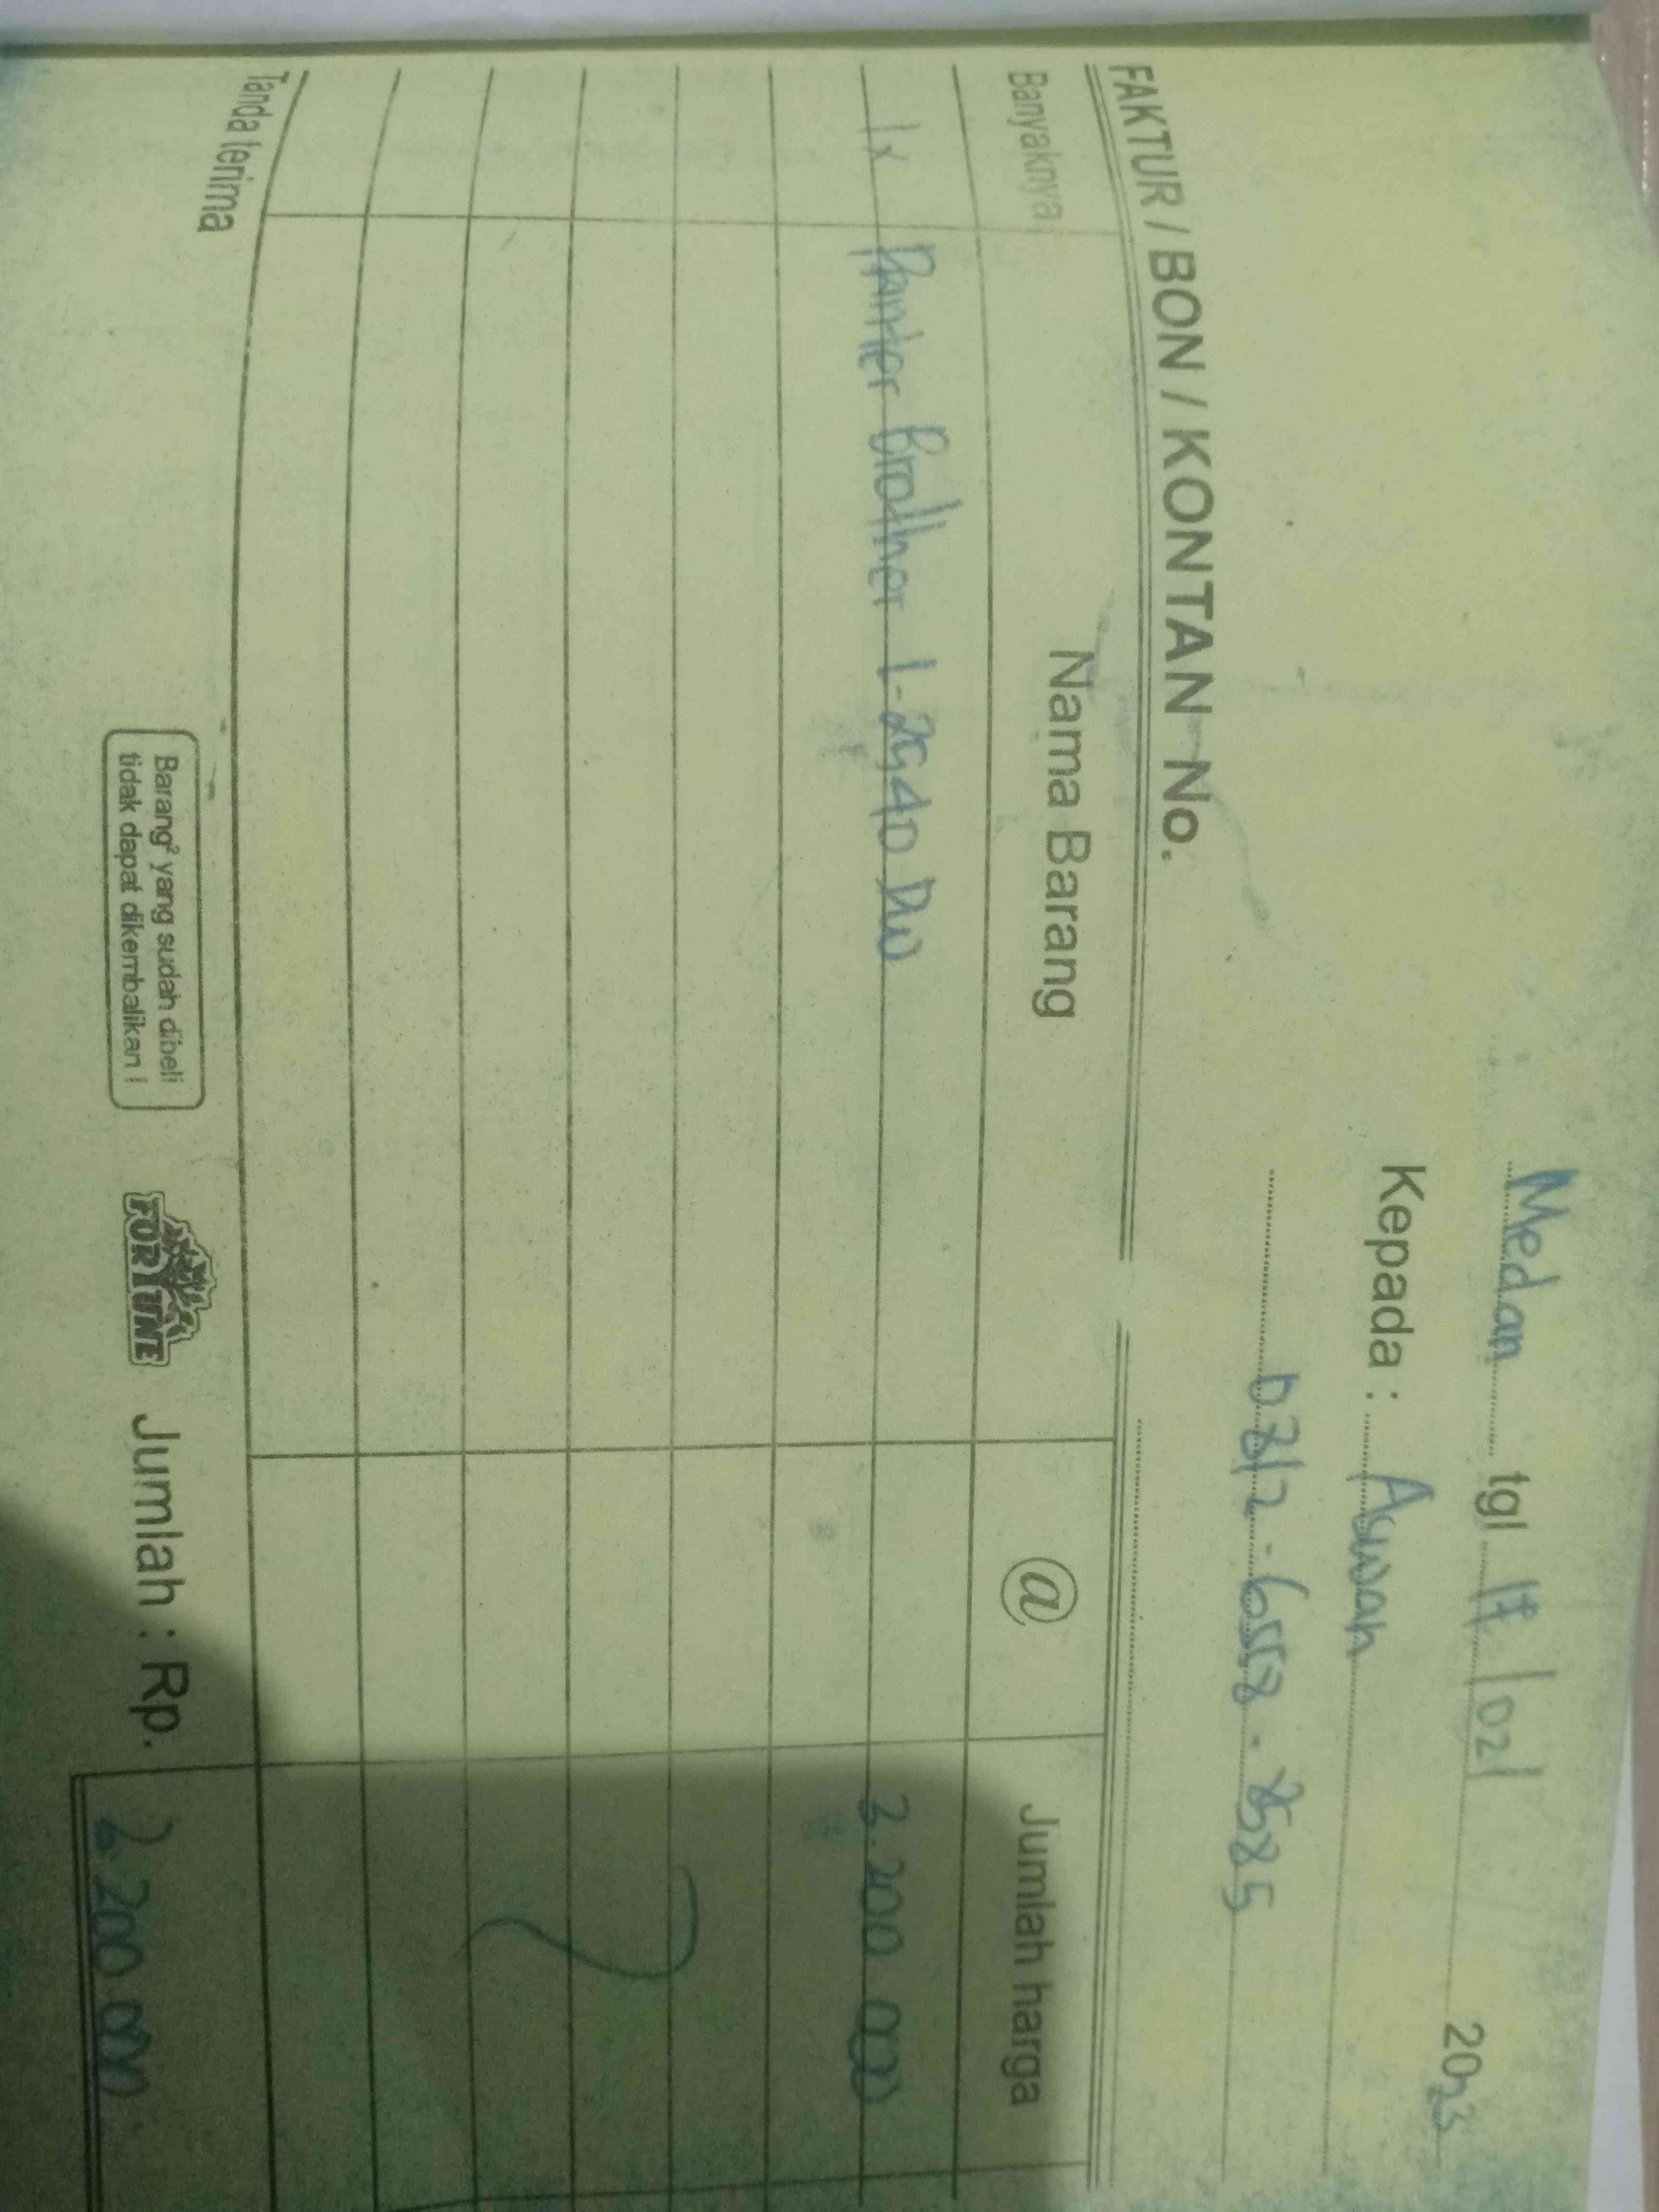 Medan tgl 17/02/ 2023
Kepada : Aswan
0812-6558-2585
FAKTUR / BON / KONTAN No.
Banyaknya Nama Barang @ Jumlah harga
1x Printer Brother L-2540 DW 2.200.000
Tanda terima
Barang² yang sudah dibeli
tidak dapat dikembalikan !
FORTUNE
Jumlah : Rp. 2.200.000